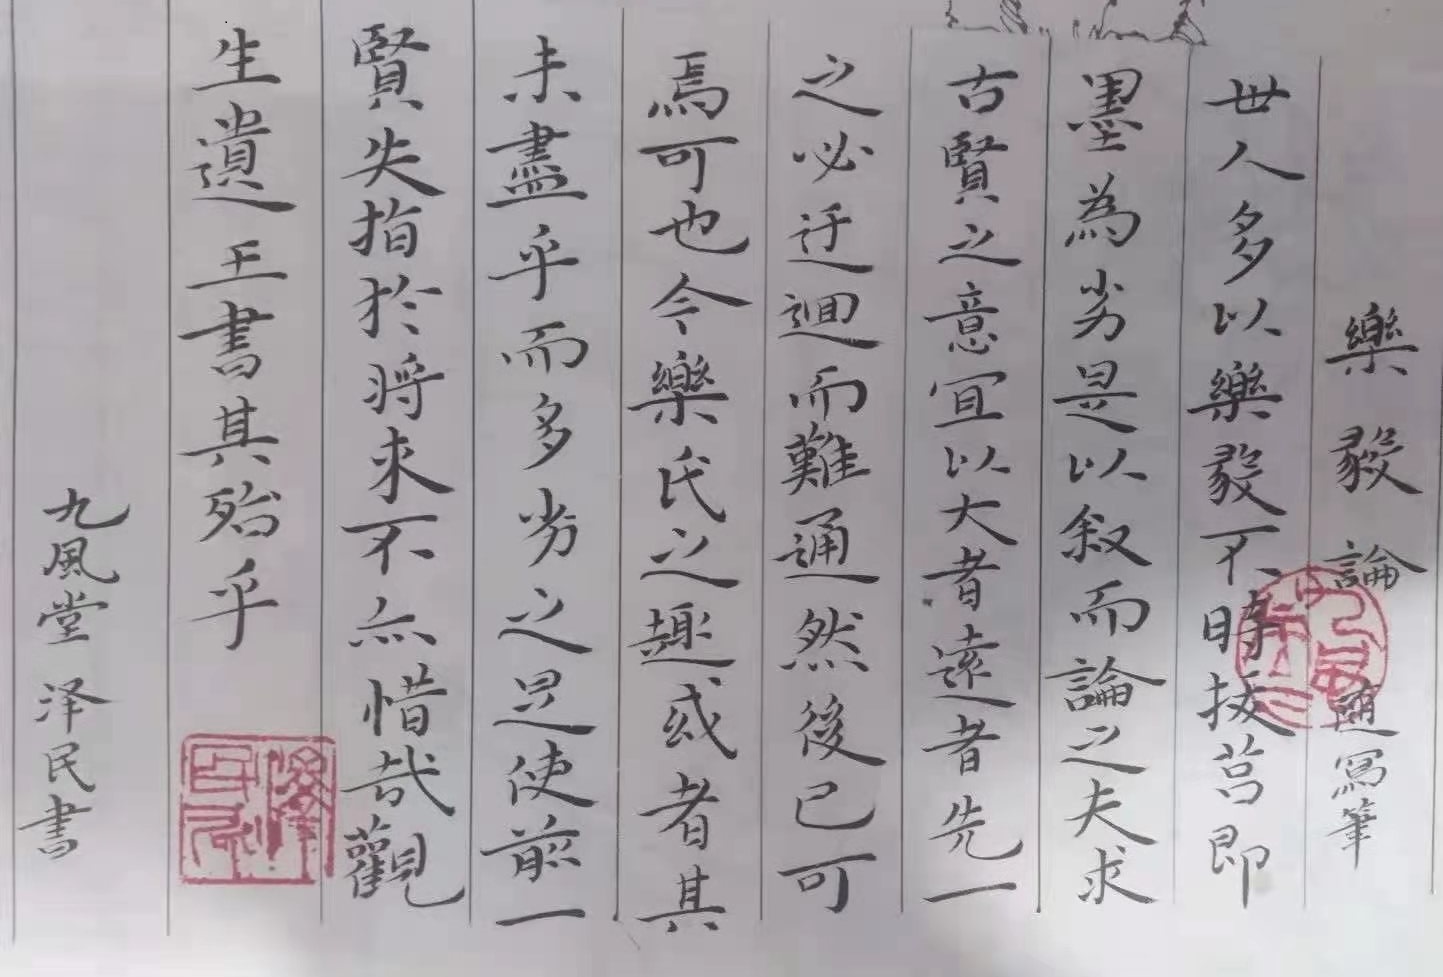 樂毅論 寫筆
世人多以樂毅不時拔莒即
墨為劣是以叙而論之夫求
古賢之意宜以大者遠者先一
之必迂迴而難通然後已可
焉可也今樂氏之趣或者其
未盡乎而多劣之是使前一
賢失指於将来不亦惜哉觀
生遺王書其殆乎
九風堂 泽民書